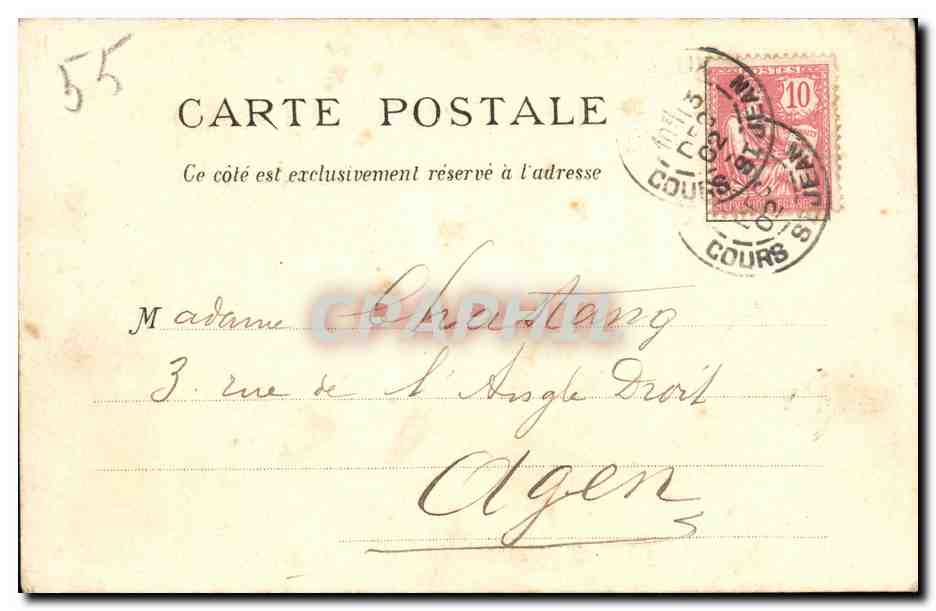 55
CARTE POSTALE
Ce côté est exclusivement réservé à l'adresse
POSTES
10
COURS ST JEAN
DEC
02
COURS ST JEAN
Madame Chastang
3. rue de l'Angle Droit
Agen
CPAPHIL